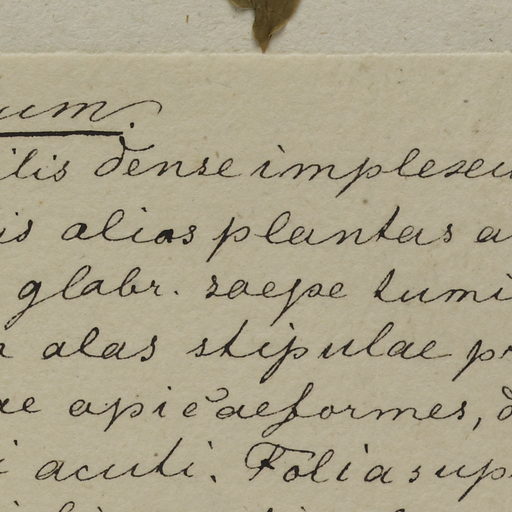 um.
ilis dense implexu
is alias plantas a
glabr. saepe tumi
alas stipulae pr
ae apice aeformes, d
i acuti. Folia sup